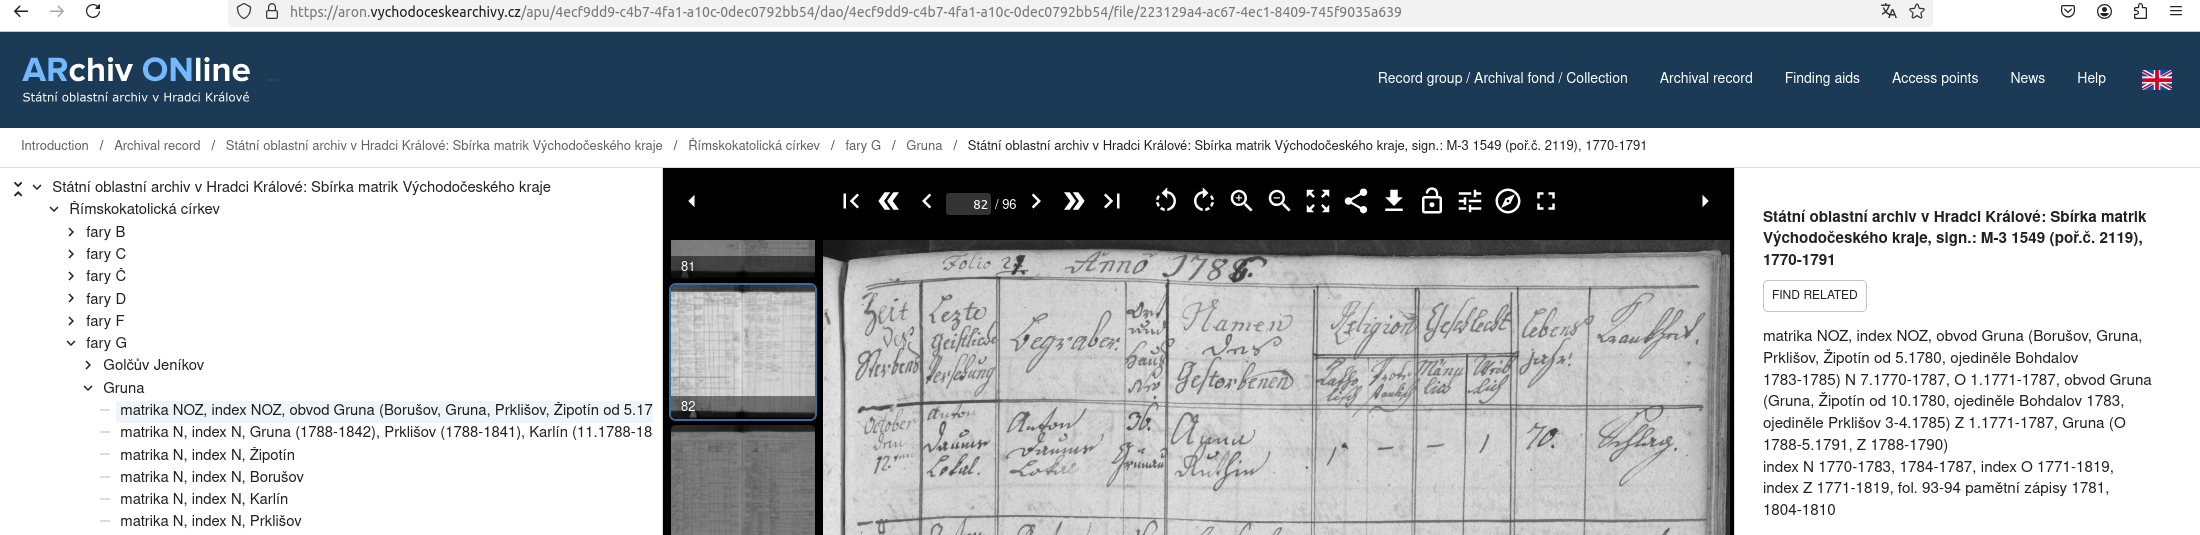 https://aron.vychodoceskearchivy.cz/apu/4ecf9dd9-c4b7-4fa1-a10c-0dec0792bb54/dao/4ecf9dd9-c4b7-4fa1-a10c-0dec0792bb54/file/223129a4-ac67-4ec1-8409-745f9035a639
ARchiv ONline
Státní oblastní archiv v Hradci Králové
Record group / Archival fond / Collection Archival record Finding aids Access points News Help
Introduction / Archival record / Státní oblastní archiv v Hradci Králové: Sbírka matrik Východočeského kraje / Římskokatolická církev / fary G / Gruna / Státní oblastní archiv v Hradci Králové: Sbírka matrik Východočeského kraje, sign.: M-3 1549 (poř.č. 2119), 1770-1791
Státní oblastní archiv v Hradci Králové: Sbírka matrik Východočeského kraje
Římskokatolická církev
fary B
fary C
fary Č
fary D
fary F
fary G
Golčův Jeníkov
Gruna
matrika NOZ, index NOZ, obvod Gruna (Borušov, Gruna, Prklišov, Žipotín od 5.17
matrika N, index N, Gruna (1788-1842), Prklišov (1788-1841), Karlín (11.1788-18
matrika N, index N, Žipotín
matrika N, index N, Borušov
matrika N, index N, Karlín
matrika N, index N, Prklišov
82 / 96
81
82
Folio Anno 178
Zeit des Sterbens
Lezte Geistliche Versehung
Begraber.
Ort und Haus Nro.
Namen des Gestorbenen
Religion
Geschlecht
Lebens Jahr.
Krankheit.
October den 12.ten
Anton Daume Lokal.
Anton Daume Lokal
36. Grünau
Anna
1. – – 1
70.
Schlag.
Státní oblastní archiv v Hradci Králové: Sbírka matrik
Východočeského kraje, sign.: M-3 1549 (poř.č. 2119),
1770-1791
FIND RELATED
matrika NOZ, index NOZ, obvod Gruna (Borušov, Gruna,
Prklišov, Žipotín od 5.1780, ojediněle Bohdalov
1783-1785) N 7.1770-1787, O 1.1771-1787, obvod Gruna
(Gruna, Žipotín od 10.1780, ojediněle Bohdalov 1783,
ojediněle Prklišov 3-4.1785) Z 1.1771-1787, Gruna (O
1788-5.1791, Z 1788-1790)
index N 1770-1783, 1784-1787, index O 1771-1819,
index Z 1771-1819, fol. 93-94 pamětní zápisy 1781,
1804-1810